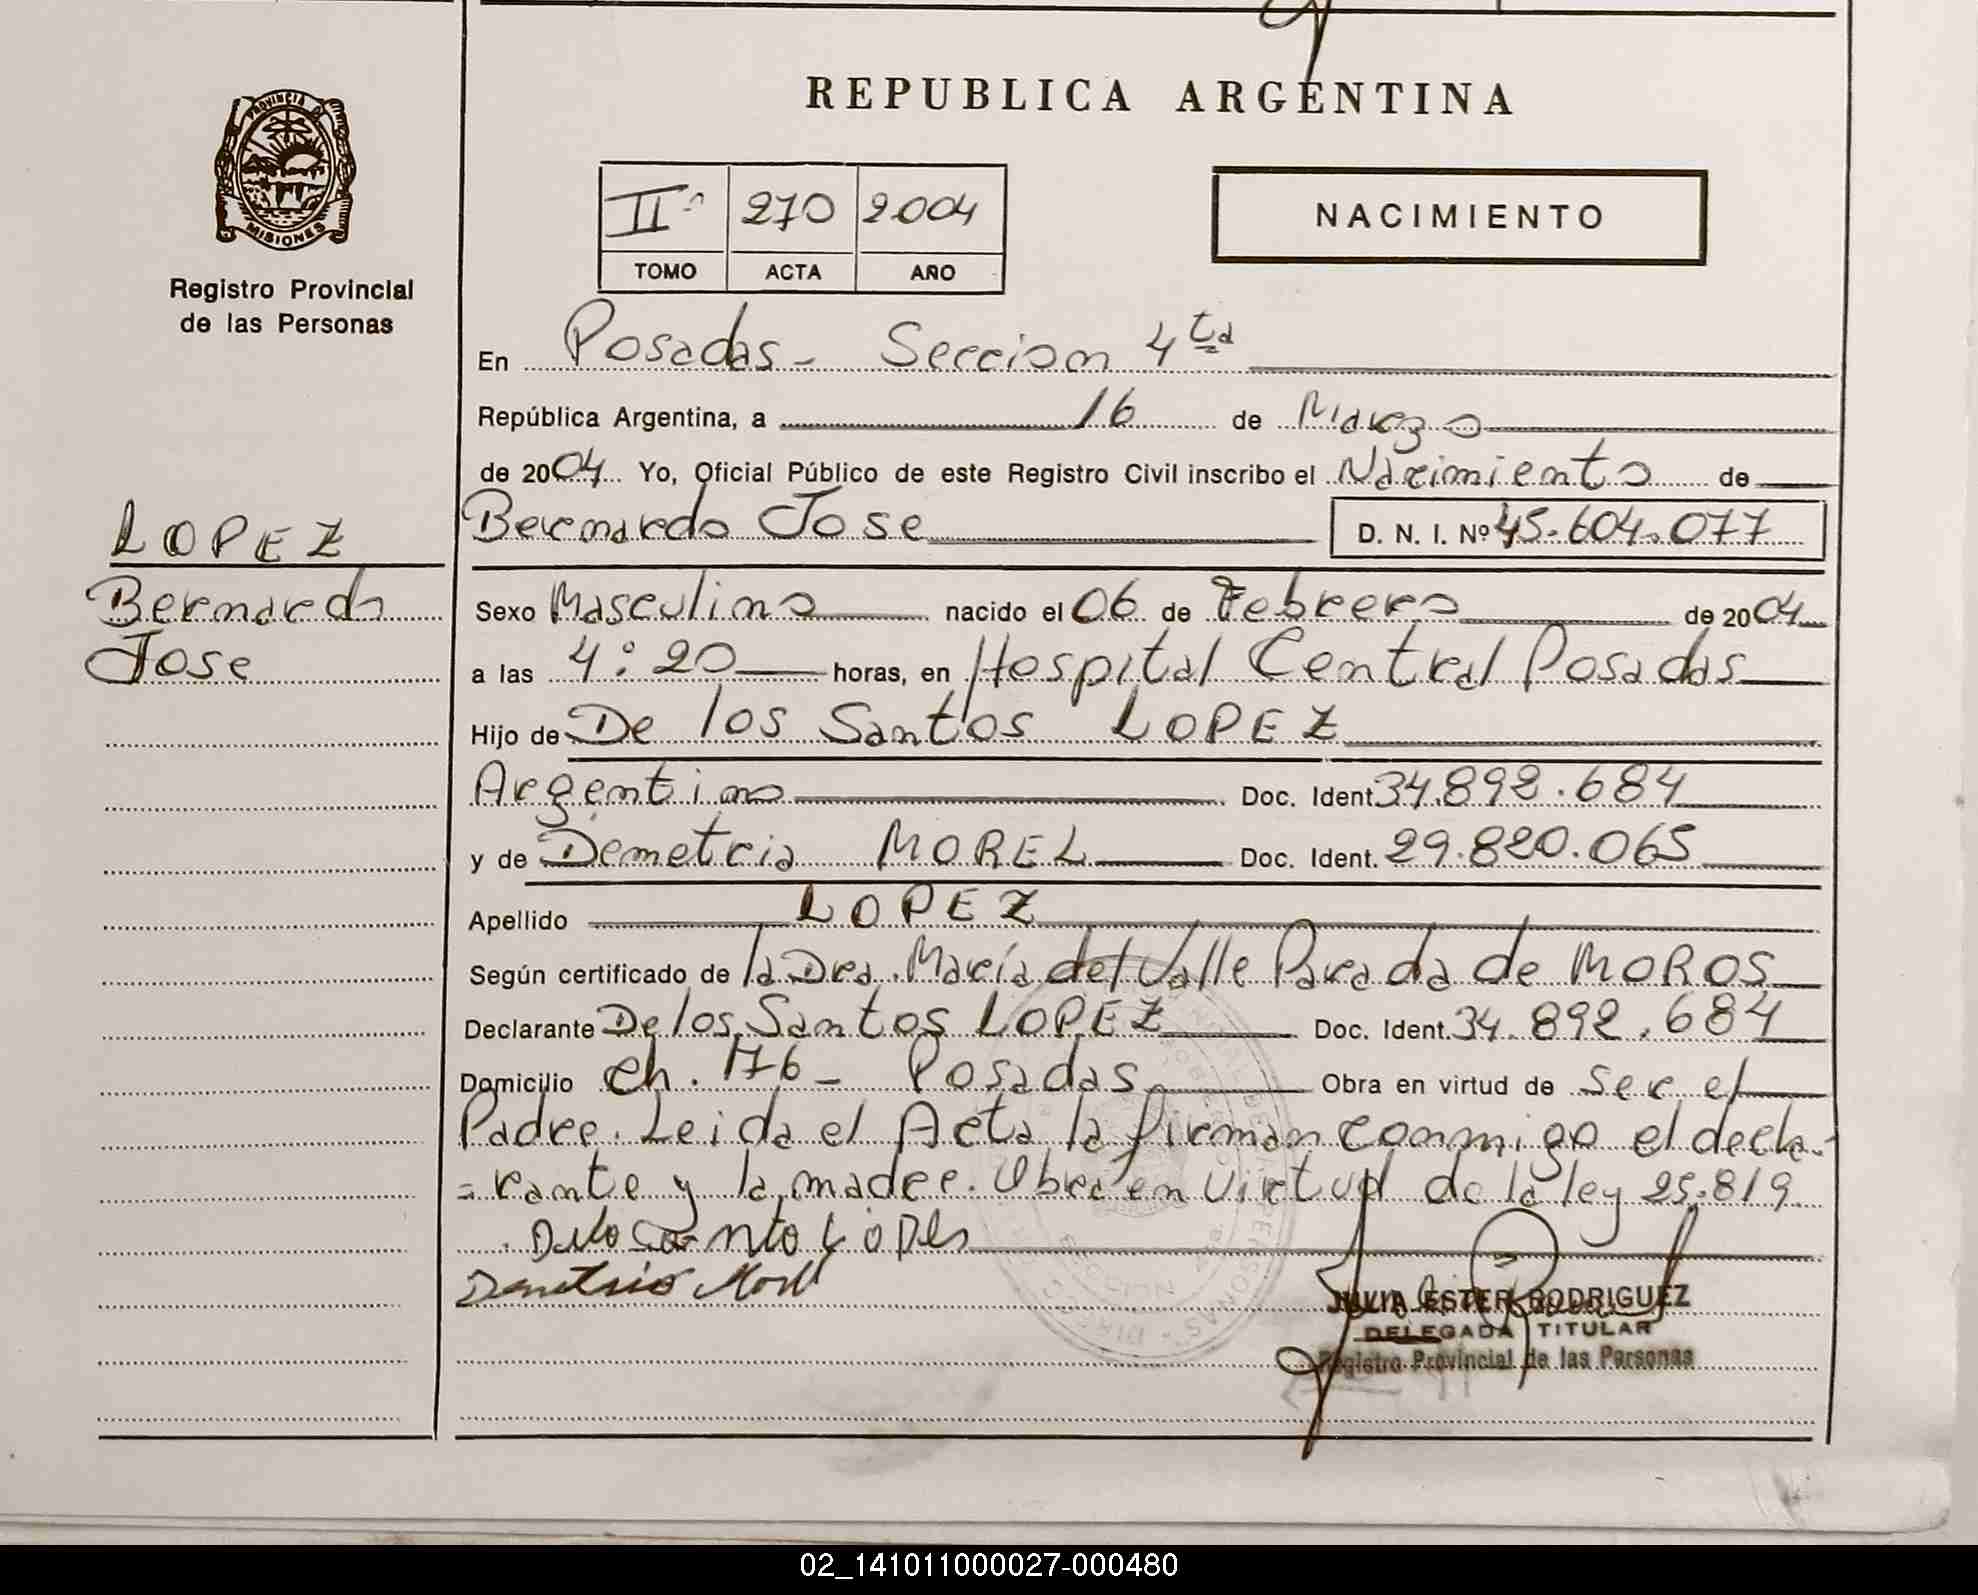 REPUBLICA ARGENTINA
PROVINCIA DE
MISIONES
Registro Provincial
de las Personas
IIº 270 2004
TOMO ACTA AÑO
NACIMIENTO
En Posadas - Seccion 4ta
República Argentina, a 16 de Marzo
de 2004 Yo, Oficial Público de este Registro Civil inscribo el Nacimiento de
Bernardo Jose D. N. I. Nº 45.604.077
LOPEZ
Bernardo
Jose
Sexo Masculino nacido el 06 de Febrero de 2004
a las 4:20 horas, en Hospital Central Posadas
Hijo de De los Santos LOPEZ
Argentino Doc. Ident 34.892.684
y de Demetria MOREL Doc. Ident. 29.820.065
Apellido LOPEZ
Según certificado de la Dra. María del Valle Parada de MOROS
Declarante De los Santos LOPEZ Doc. Ident. 34.892.684
Domicilio Ch. 176 - Posadas Obra en virtud de ser el
Padre. Leida el Acta la firman conmigo el decla-
=rante y la madre. Obra en virtud de la ley 25.819
JULIA ESTER RODRIGUEZ
DELEGADA TITULAR
Registro Provincial de las Personas
02_141011000027-000480